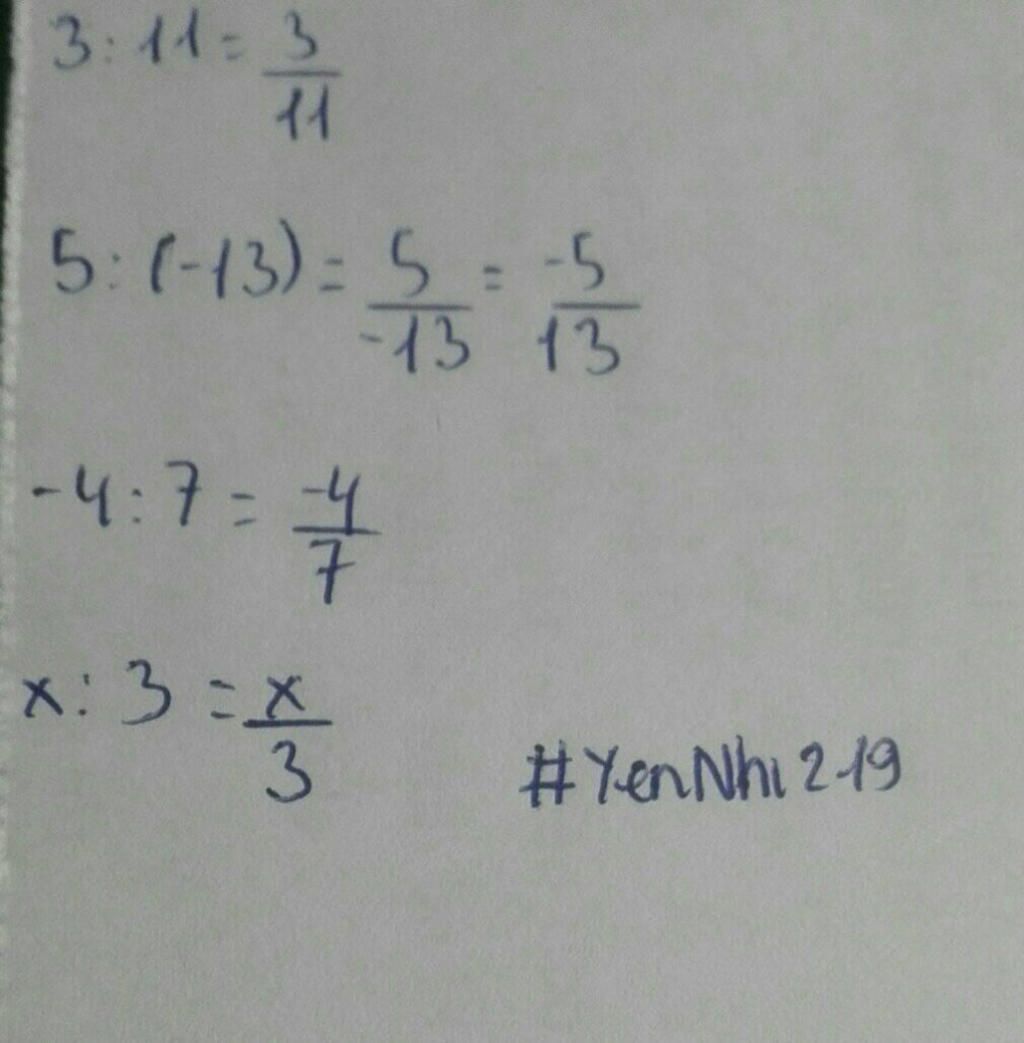 3 : 11 = 3/11
5 : (-13) = 5/-13 = -5/13
-4 : 7 = -4/7
x : 3 = x/3
#YenNhi219